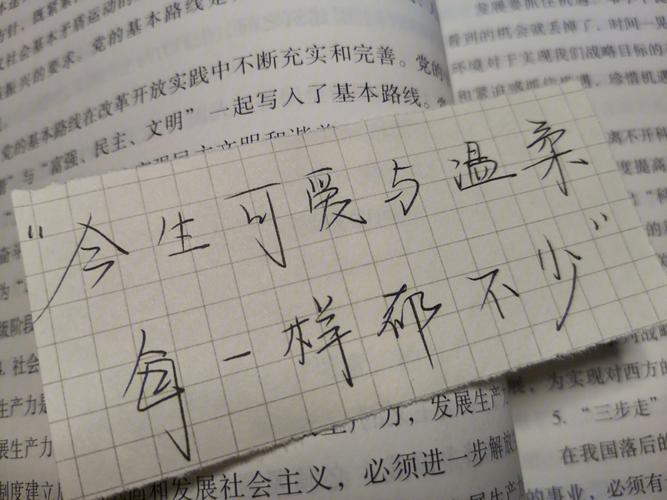 看到的机会就丢掉了,时间一
环境对于实现我们战略目标的
社会基本矛盾运动的
振兴的要求。党的基本路线是
在改革开放实践中不断充实和完善。党的
党的基本路线
"富强、民主、文明"一起写入了基本路线。
“今生可爱与温柔
每一样都不少”
社会
生产力是
发展生产
展生产力
和发展社会主义,必须进一步解放
制度建立
为实现对西方的
5. “三步走”
在我国落后的
的事业,必须有